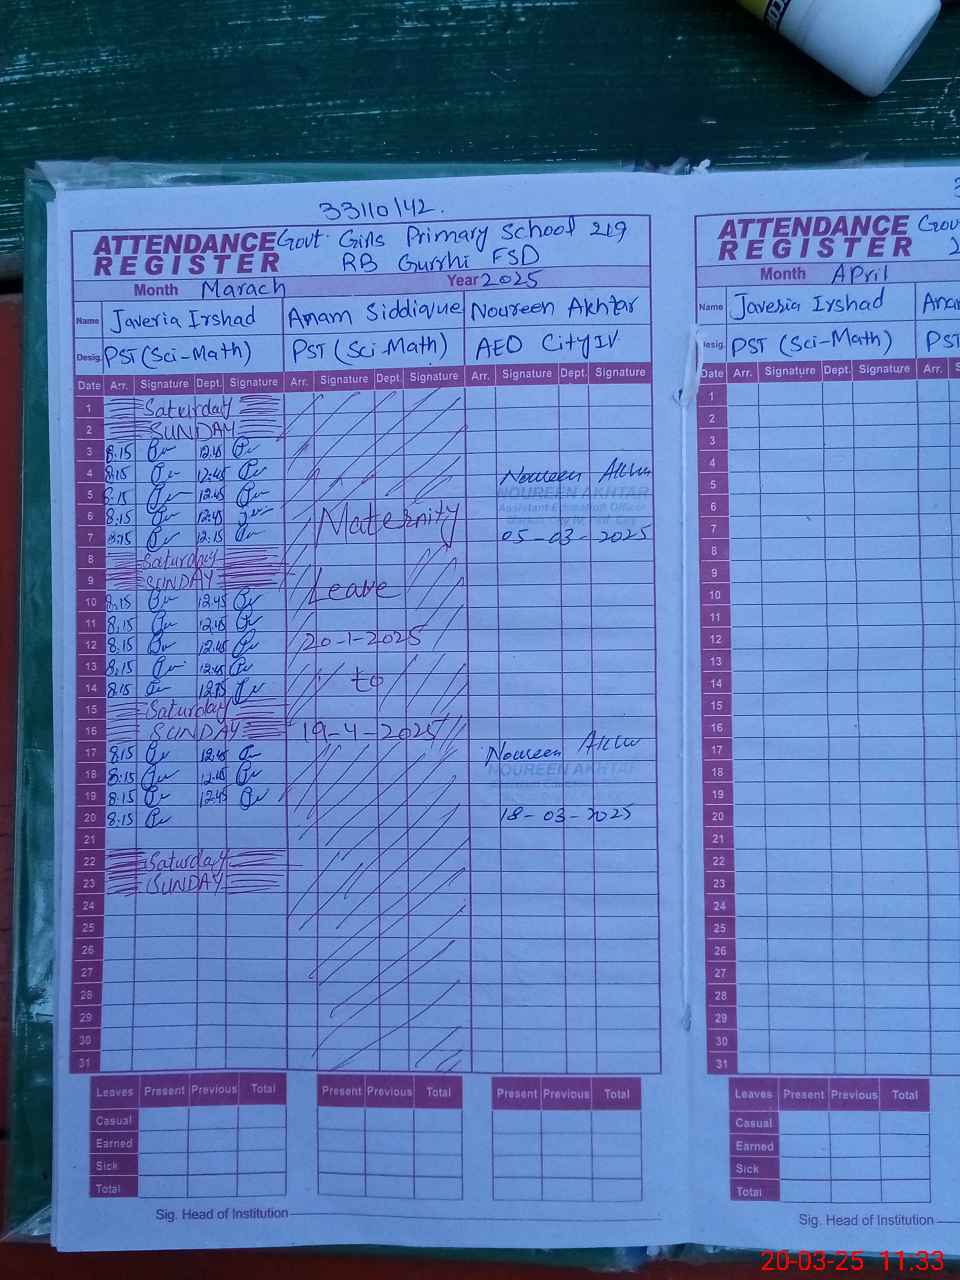 33110/42.
ATTENDANCE REGISTER
Govt. Girls Primary School 219
RB Gurrhi FSD
Month Marach Year 2025
Name Javeria Irshad Anam Siddique Noureen Akhtar
Desig. PST (Sci-Math) PST (Sci Math) AEO City IV
Date Arr. Signature Dept. Signature Arr. Signature Dept. Signature Arr. Signature Dept. Signature
1 Saturday
2 SUNDAY
3 8.15 12.45
4 8:15 12:45 Noureen
5 8:15 12.45 NOUREEN AKHTAR
Assistant Education Officer
6 8.15 12.45 Maternity
7 12.15 05-03-2025
8 Saturday
9 SUNDAY Leave
10 8.15 12.45
11 8.15 12.45
12 8.15 12.45 20-1-2025
13 8.15 12.45
14 8.15 to
15 Saturday
16 SUNDAY 19-4-2025
17 8.15 12.45 Noureen
18 8:15 12.45 NOUREEN AKHTAR
19 8:15 12.45
20 8:15 18-03-2025
21
22 Saturday
23 SUNDAY
24
25
26
27
28
29
30
31
Leaves Present Previous Total Present Previous Total Present Previous Total
Casual
Earned
Sick
Total
Sig. Head of Institution
ATTENDANCE REGISTER
Month April
Name Javeria Irshad
Desig. PST (Sci-Math) PST
Date Arr. Signature Dept. Signature Arr.
1
2
3
4
5
6
7
8
9
10
11
12
13
14
15
16
17
18
19
20
21
22
23
24
25
26
27
28
29
30
31
Leaves Present Previous Total
Casual
Earned
Sick
Total
Sig. Head of Institution
20-03-25 11.33